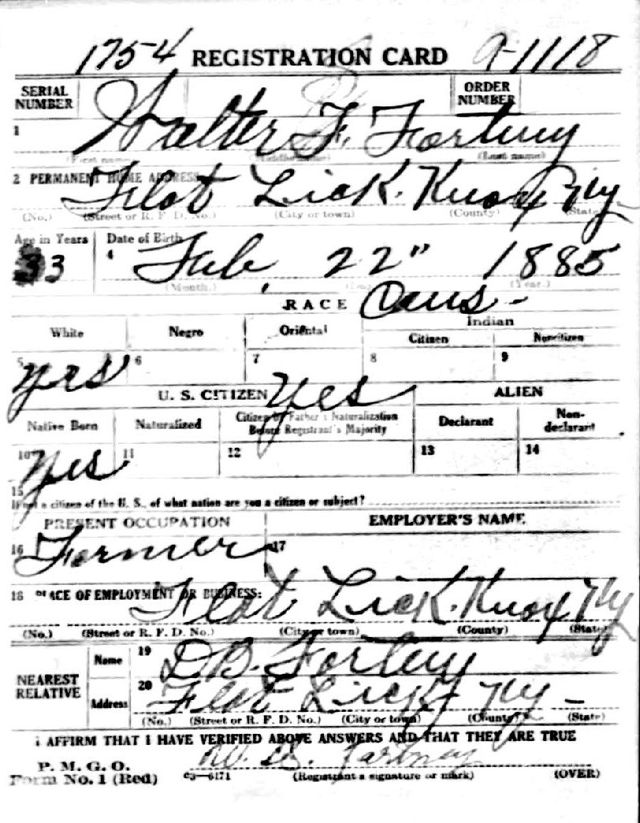 1754 REGISTRATION CARD A-1118
SERIAL NUMBER ORDER NUMBER
1 Walter F. Fortney
(First name) (Middle name) (Last name)
2 PERMANENT HOME ADDRESS
Flat Lick. Knox Ky
(No.) (Street or R. F. D. No.) (City or town) (County) (State)
Age in Years Date of Birth
33 4 Feb, 22" 1885
(Month.) (Day.) (Year.)
RACE Caus-
White Negro Oriental Indian
Citizen Noncitizen
5 yes 6 7 8 9
U. S. CITIZEN yes ALIEN
Native Born Naturalized Citizen by Father's Naturalization Before Registrant's Majority Declarant Non-declarant
10 yes 11 12 13 14
15
If not a citizen of the U. S., of what nation are you a citizen or subject?
PRESENT OCCUPATION EMPLOYER'S NAME
16 Farmer 17
18 PLACE OF EMPLOYMENT OR BUSINESS:
Flat Lick. Knox Ky
(No.) (Street or R. F. D. No.) (City or town) (County) (State)
NEAREST RELATIVE Name 19 D.B. Fortney
Address 20 Flat Lick Ky-
(No.) (Street or R. F. D. No.) (City or town) (County) (State)
I AFFIRM THAT I HAVE VERIFIED ABOVE ANSWERS AND THAT THEY ARE TRUE
P. M. G. O.
Form No. 1 (Red) c3-6171 (Registrant's signature or mark) (OVER)